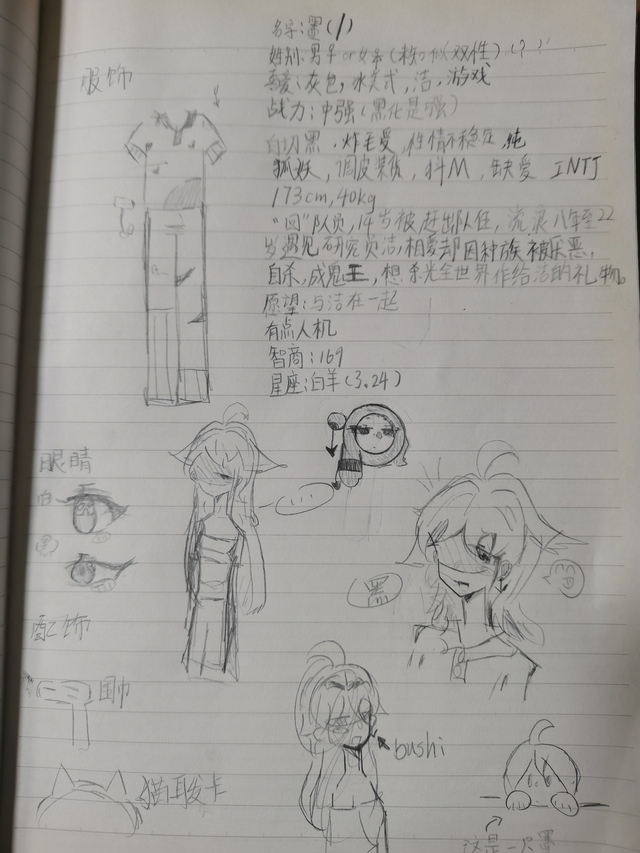 服饰
名字:墨(/)
性别:男 or 女 (双性)(?)
喜爱:灰色,冰美式,洁,游戏
战力:中强(黑化是强)
白切黑,炸毛受,性情不稳定,纯
狐妖,调皮,抖M,缺爱 INTJ
173cm,40kg
“回”队员,14岁被赶出队伍,流浪八年至22
岁遇见研究员洁,相爱却因种族被厌恶,
自杀,成鬼王,想杀光全世界作给洁的礼物。
愿望:与洁在一起
有点人机
智商:169
星座:白羊(3.24)
眼睛
白
黑
墨
配饰
围巾
bushi
猫耳发卡
这是一只墨